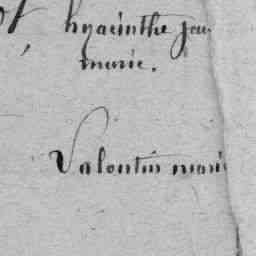 hyacinthe jea
marie.
Valentin mari